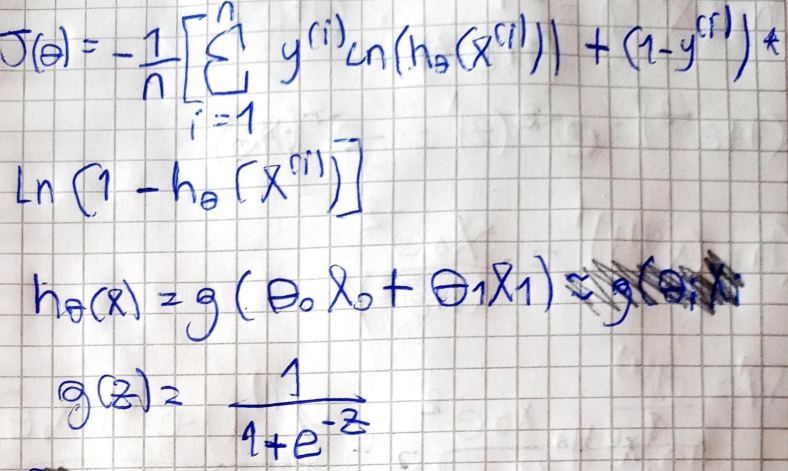 J(θ) = -1/n [ Σ_{i=1}^{n} y^(i) Ln(h_θ(x^(i))) + (1-y^(i)) *
Ln (1 - h_θ (x^(i))]
h_θ(x) = g(θ₀x₀ + θ₁x₁)
g(z) = 1/(1+e^-z)